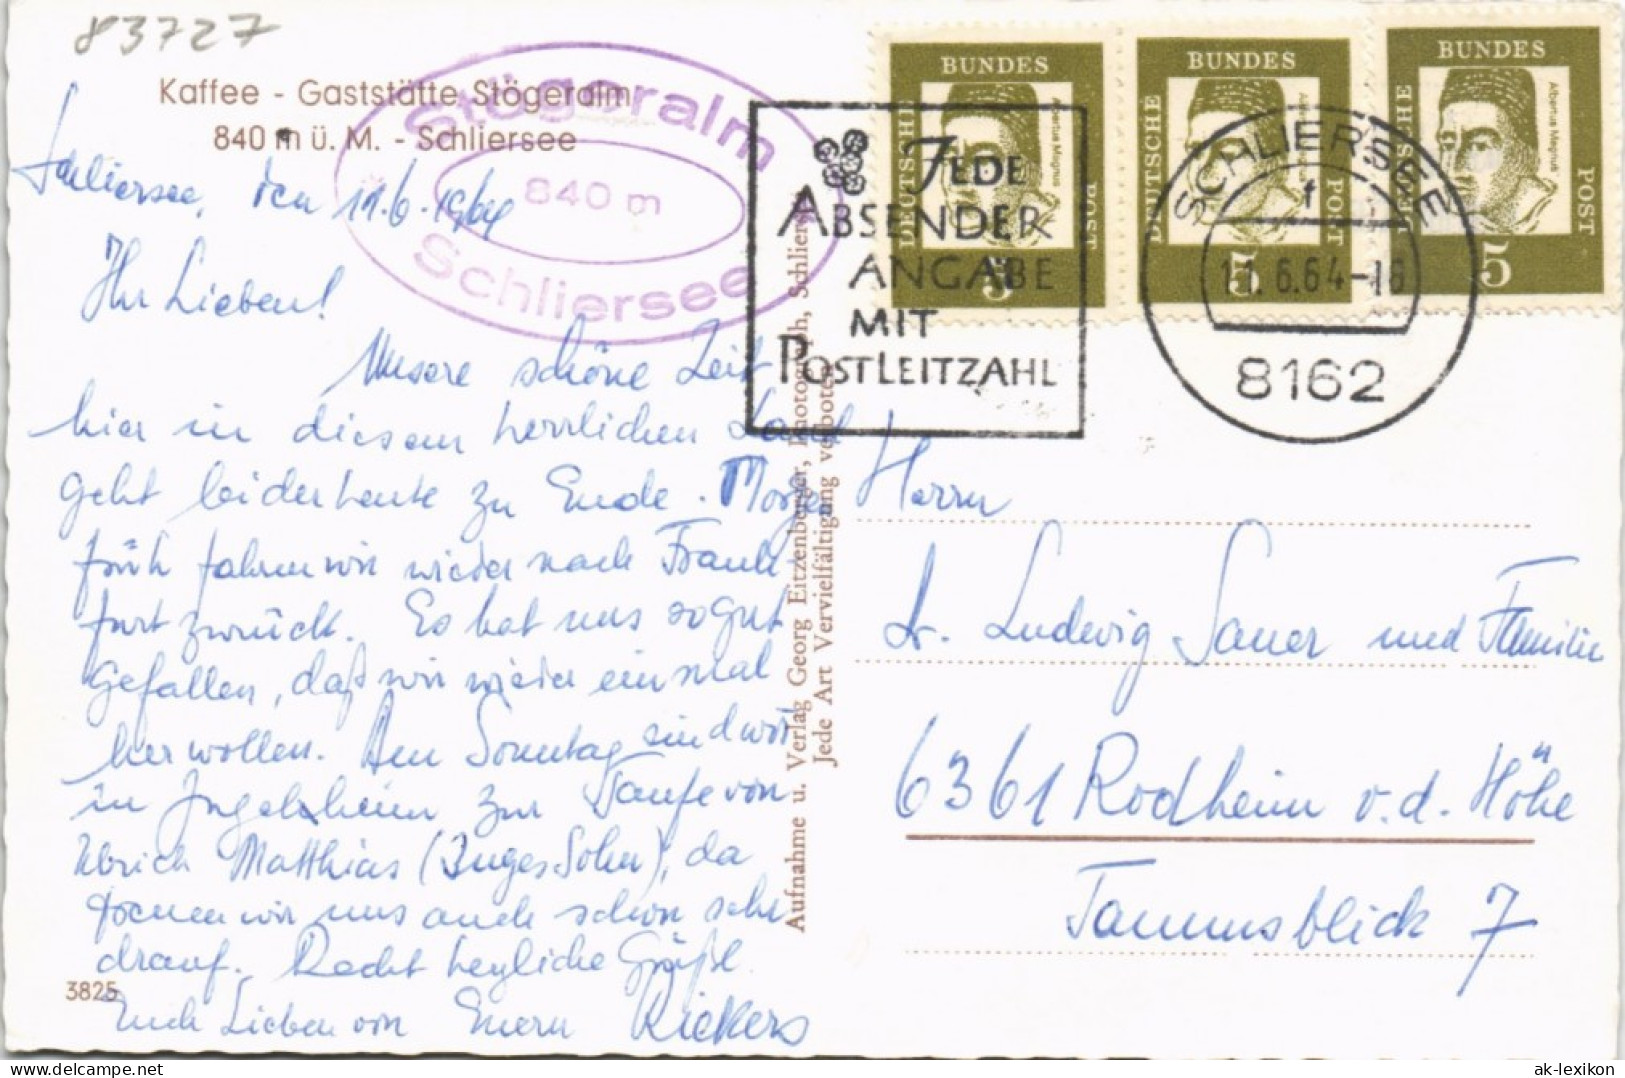 83727
Kaffee - Gaststätte Stögeralm
840 m ü. M. - Schliersee
Stögeralm
840 m
Schliersee
BUNDES
DEUTSCHE
POST
Albertus Magnus
5
BUNDES
DEUTSCHE
POST
5
BUNDES
DEUTSCHE
POST
Albertus Magnus
5
JEDE
ABSENDER
ANGABE
MIT
POSTLEITZAHL
SCHLIERSEE
f
11.6.64-16
8162
Schliersee, den 11.6.1964
Ihr Lieben!
Unsere schöne Zeit
hier in diesem herrlichen Land
geht leider heute zu Ende. Morgen
früh fahren wir wieder nach Frank
furt zurück. Es hat uns so gut
gefallen, daß wir wieder einmal
her wollen. Am Sonntag sind wir
in Ingelsheim zur Taufe von
Ulrich Matthias (Inges Sohn), da
freuen wir uns auch schon sehr
drauf. Recht herzliche Grüße
Euch Lieben von Euern Rickers
3825
Aufnahme u. Verlag Georg Eitzenberger, Photograph, Schliersee
Jede Art Vervielfältigung verboten
Herrn
Dr. Ludwig Sauer und Familie
6361 Rodheim v.d. Höhe
Taunusblick 7
ak-lexikon